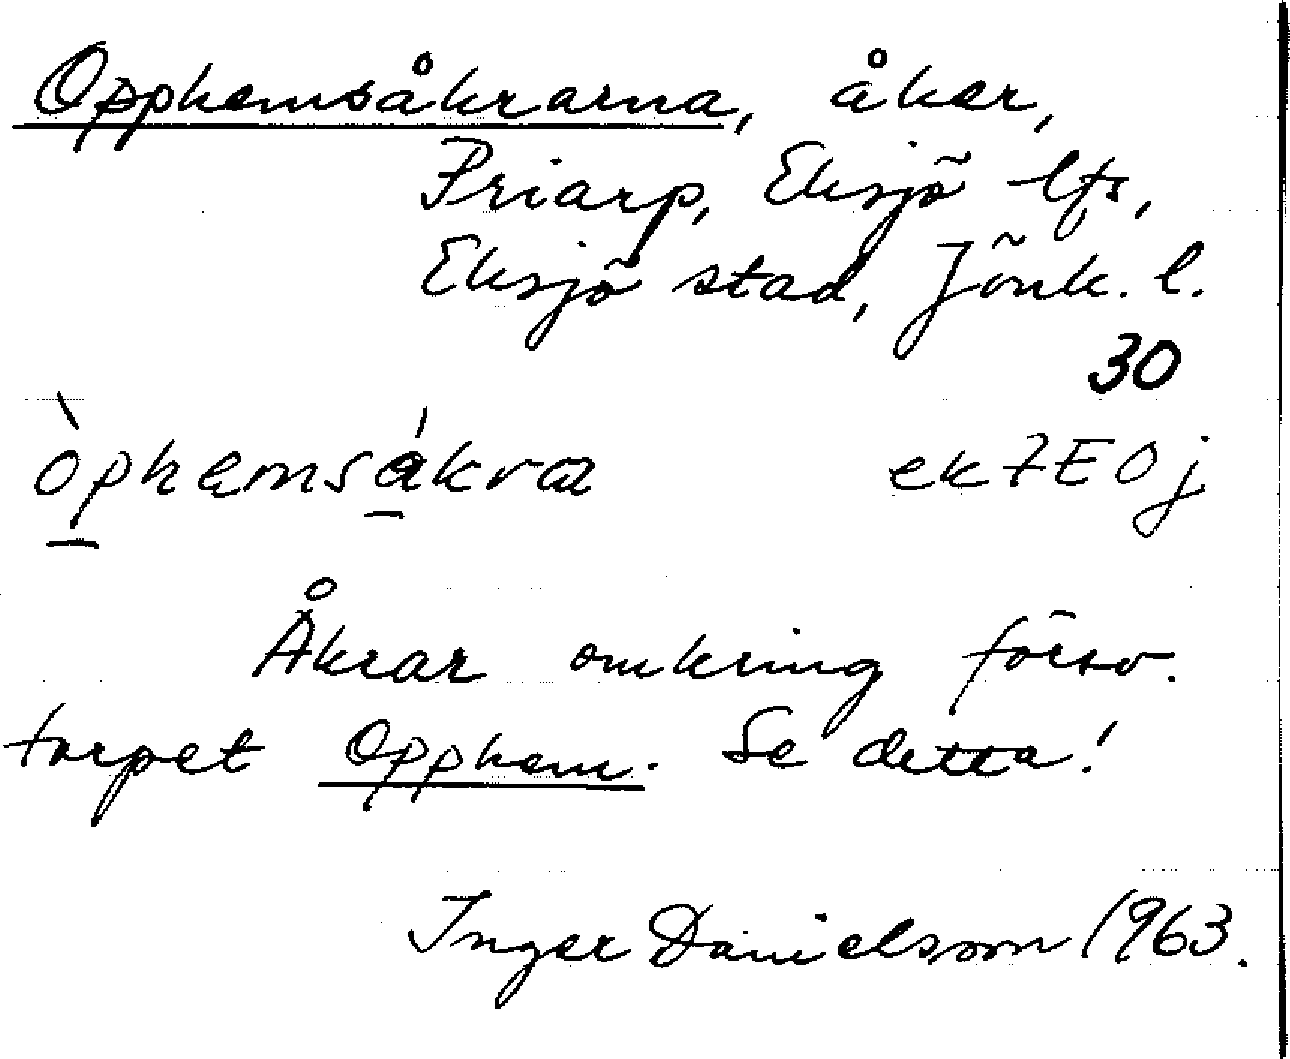 Opphemsåkrarna, åker,
Priarp, Eksjö lfs,
Eksjö stad, Jönk. l.
30
òphemsákra ek7E0j
Åkrar omkring försv.
torpet Opphem. Se detta!
Inger Danielsson 1963.